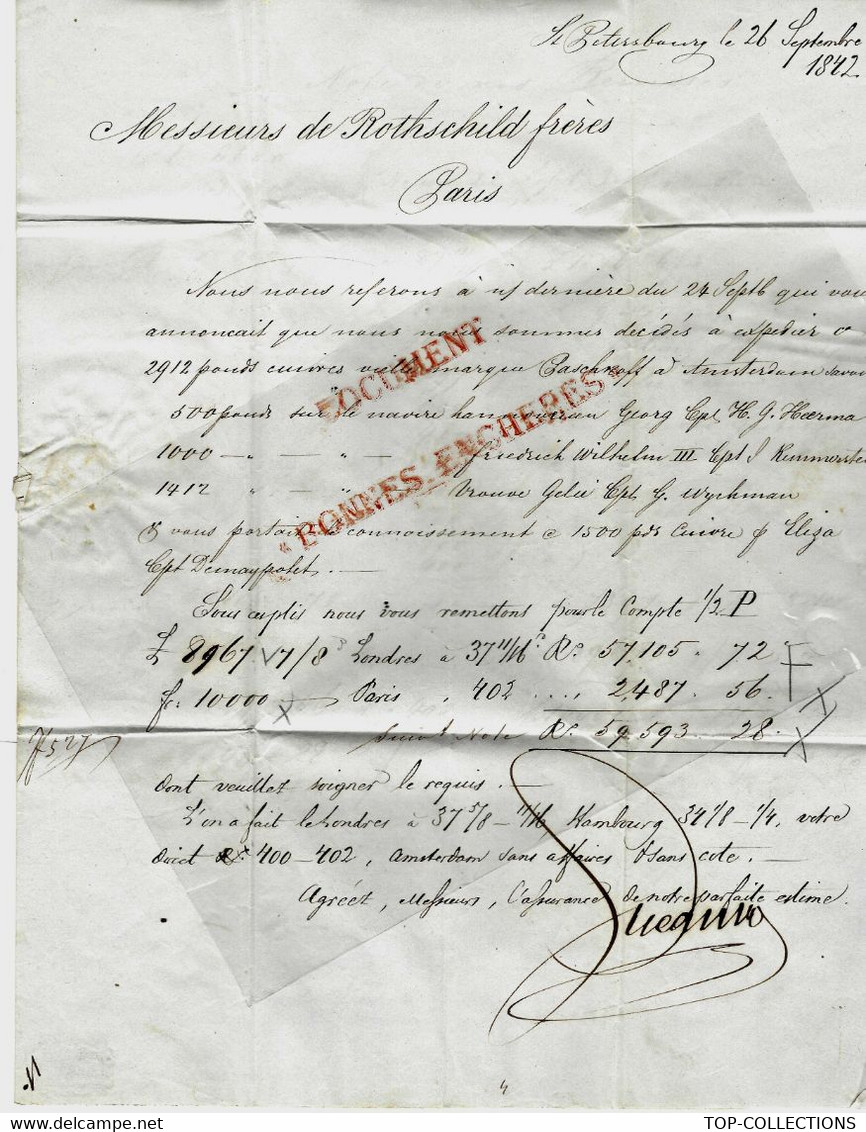 St Petersbourg le 26 Septembre
1842
Messieurs de Rothschild frères
Paris
Nous nous referons à n/ dernière du 24 Septb qui vou
annoncait que nous nous sommes décidés à expedier
2912 pouds cuivres vieille marque Paschkoff à Amsterdam savoi
500 pouds sur le navire hannovrien Georg Cpt H. G. Heerma
1000 — " — " — Friedrich Wilhelm III Cpt J
1412 " — " Vrouwe Cpt G.
& vous portait le connoissement @ 1500 pds Cuivre p Eliza
Cpt
Sous ce plis nous vous remettons pour le Compte 1/2 P
£ 8967. 7/8 Londres à 37 11/16 Ro. 57,105. 72
fr: 10000 — Paris " 402 .... " 2,487. 56.
Suivt Note Ro. 59,593. 28.
7527
dont veuillez soigner le requis. —
L'on a fait le Londres à 37 5/8 – 11/16 Hambourg 34 1/8 – 1/4, votre
divict 400 – 402, Amsterdam sans affaires & sans cote. —
Agréez, Messieurs, l'assurance de notre parfaite estime.
DOCUMENT
"BONNES ENCHERES"
4
TOP-COLLECTIONS